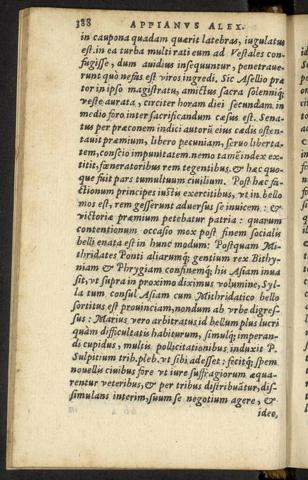 388 APPIANVS ALEX.
in caupona quadam quærit latebras, iugulatus
est. in ea turba multi rati eum ad Vestales con-
fugisse, dum auidius insequuntur, penetraue-
runt quò nefas est viros ingredi. Sic Asellio præ
tor in ipso magistratu, amictus sacra solenniq;
veste aurata, circiter horam diei secundam. in
medio foro inter sacrificandum cæsus est. Sena-
tus per præconem indici autorii eius cædis osten-
tauit præmium, libero pecuniam, seruo liberta-
tem, conscio impunitatem. nemo tamē index ex-
titit, fœneratoribus rem tegentibus, & hæc quo-
que fuit pars tumultuum ciuilium. Post hæc fa-
ctionum principes iustis exercitibus, vt in bello
mos est, rem gesserunt aduersus se inuicem: &
victoriæ præmium petebatur patria: quarum
contentionum occasio mox post finem socialis
belli enata est in hunc modum: Postquam Mi-
thridates Ponti aliarumq; gentium rex Bithy-
niam & Phrygiam confinemq; his Asiam inua
sit, vt supra in proximo diximus volumine, Syl-
la tum consul Asiam cum Mithridatico bello
sortitus est prouinciam, nondum ab vrbe digres-
sus: Marius vero arbitratus id bellum plus lucri
quàm difficultatis habiturum, simulq; imperan-
di cupidus, multis pollicitationibus induxit P.
Sulpitium trib. pleb. vt sibi adesset: fecitq; spem
nouellis ciuibus fore vt iure suffragiorum æqua-
rentur veteribus, & per tribus distribuātur, dis-
simulans interim, suum se negotium agere, &
ideo,